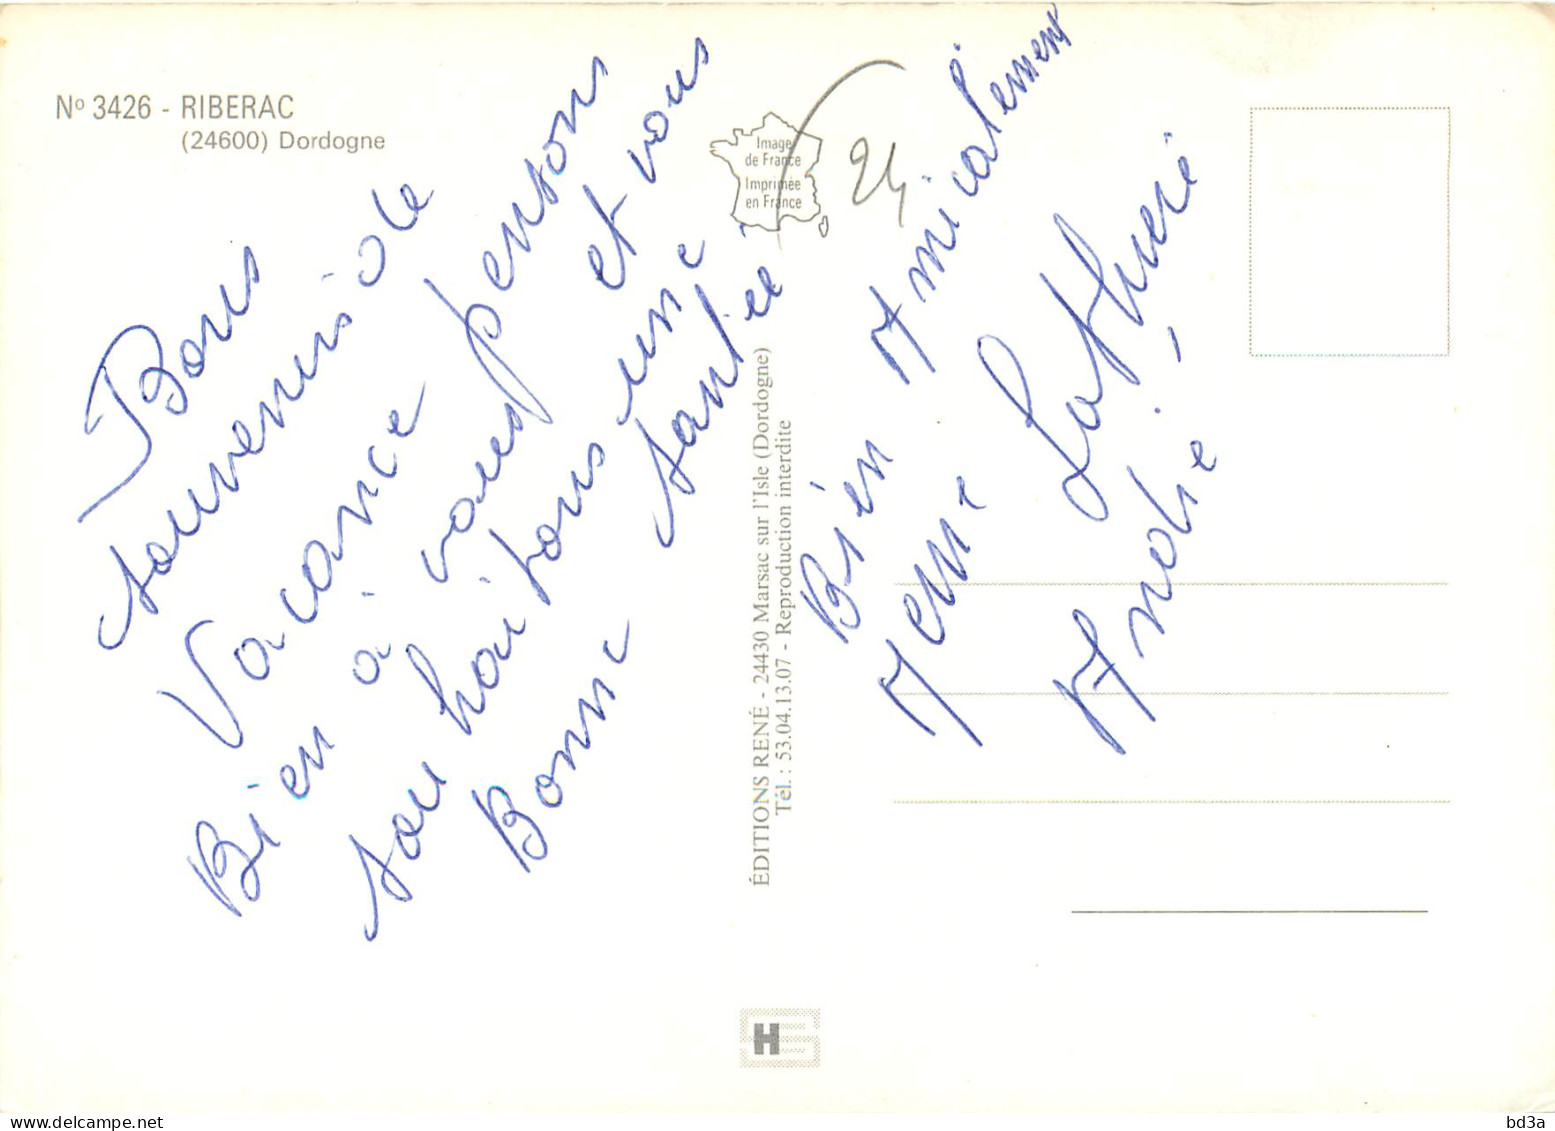 Nº 3426 - RIBERAC
(24600) Dordogne
Bons
souvenirs de
Vacance
Bien à vous pensons
souhaitons et vous
Bonne une
santée
Image
de France
Imprimée
en France
24
ÉDITIONS RENÉ - 24430 Marsac sur l'Isle (Dordogne)
Tél. : 53.04.13.07 - Reproduction interdite
Bien Amicalement
André
H
bd3a